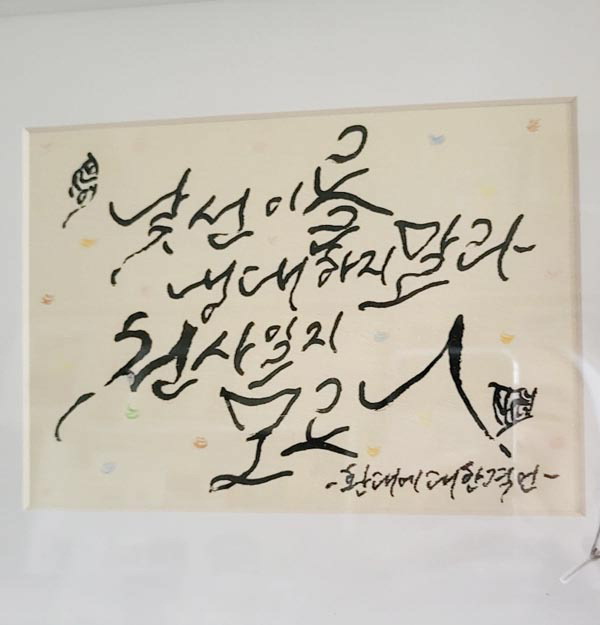 낯선 이를
냉대하지 말라
천사일지
모르니
-환대에 대한 격언-